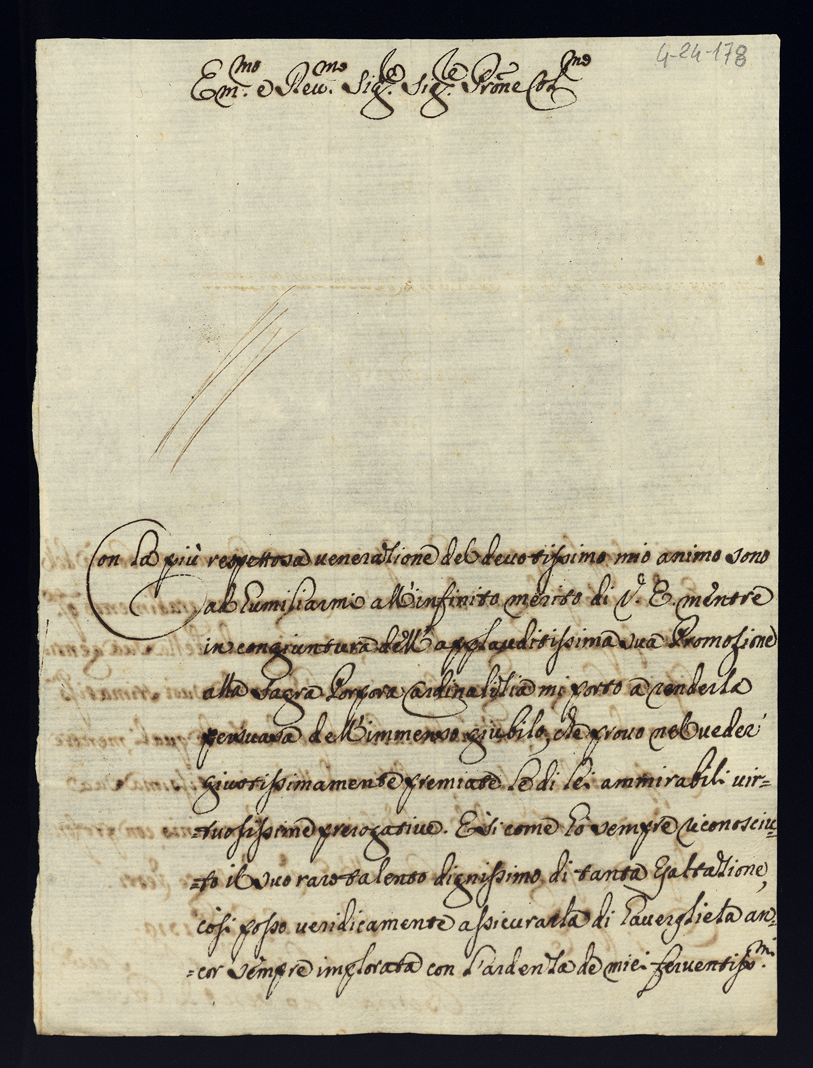 4-24-178
Em.mo e Reu.mo Sig.re Sig.re Prõne Col.mo
Con la più respettosa venerazione del deuotissimo mio animo sono
ad humiliarmi all'infinito merito di V. E. mentre
in congiuntura dell'applauditissima sua Promozione
alla Sagra Porpora Cardinalizia mi porto a renderla
persuasa dell'immenso giubilo, che prouo nel ueder
giustissimamente premiate le di lei ammirabili vir=
=tuosissime prerogatiue. E si come hò sempre riconosciu=
=to il suo raro talento dignissimo di tanta Esaltazione,
così posso veridicamente assicurarla di hauerglieta an=
=cor sempre implorata con l'ardenza de miei feruentiss.mi